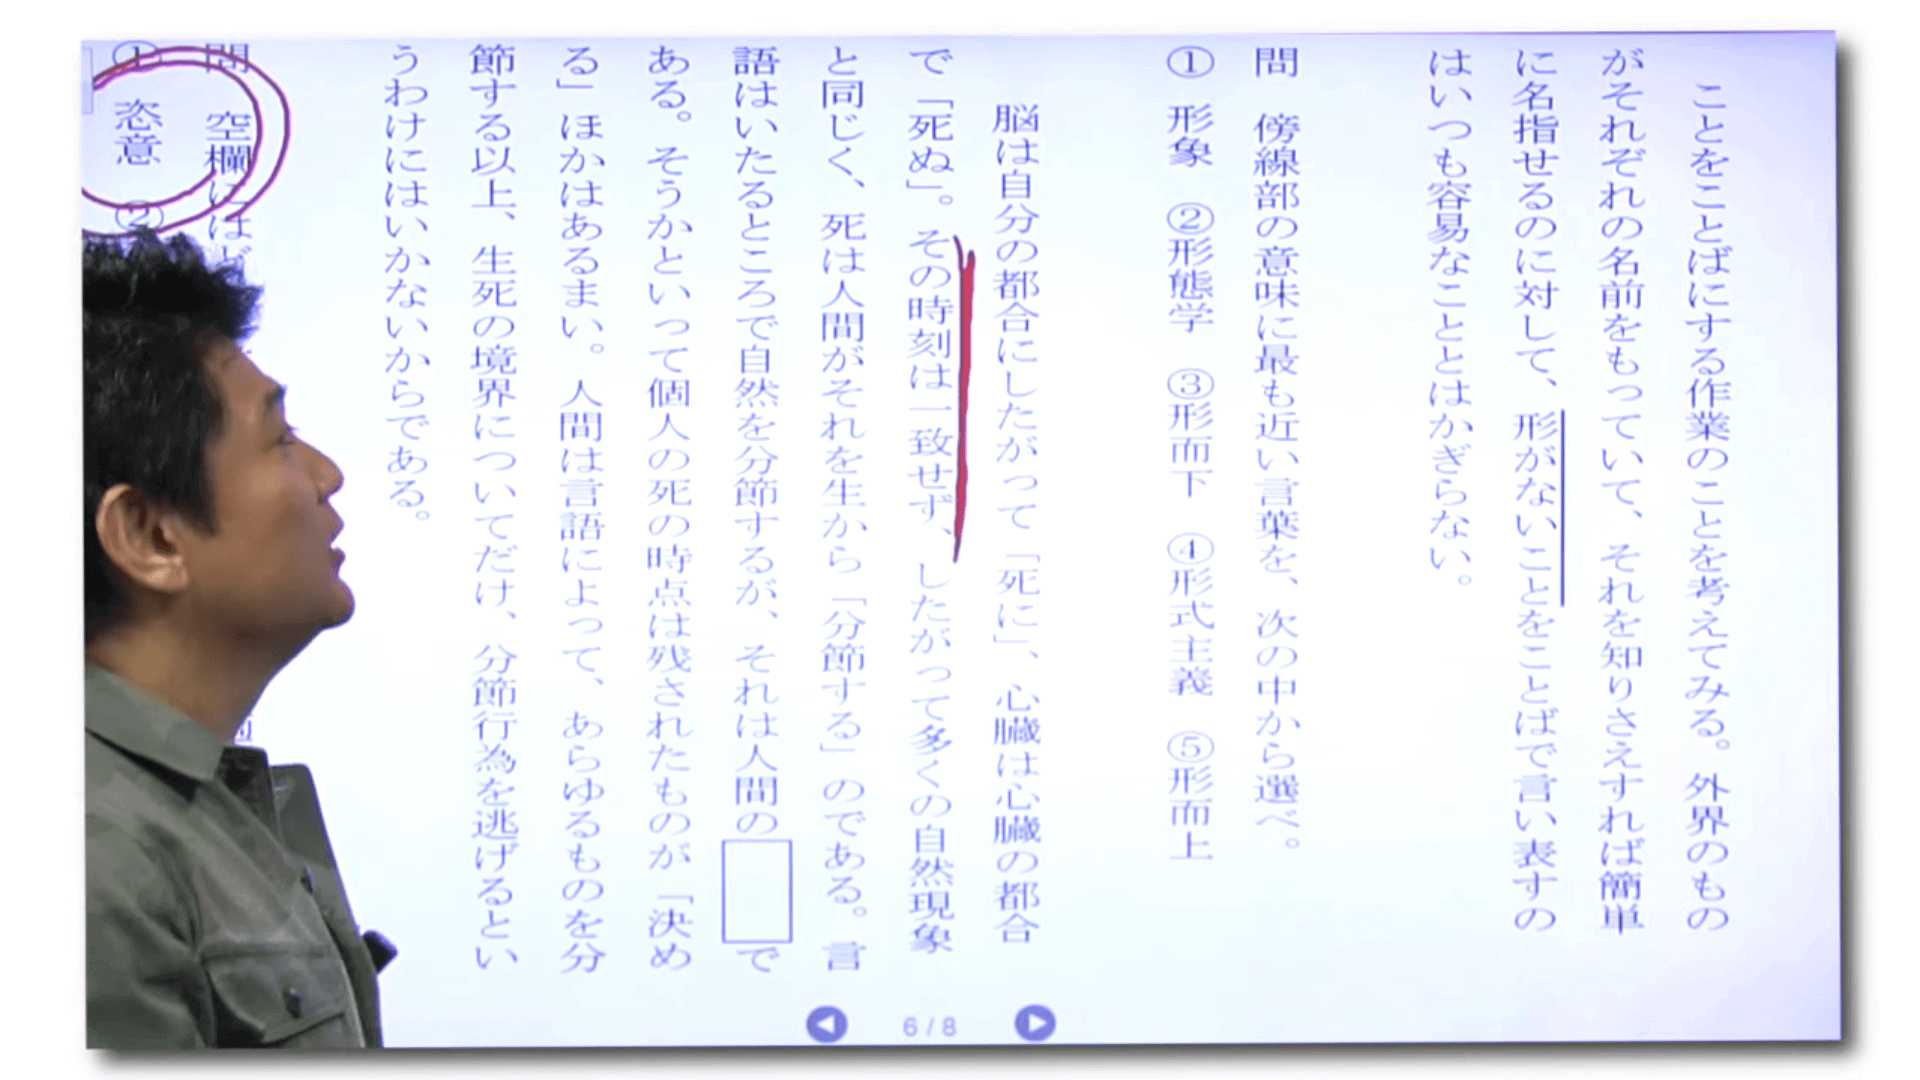 ことをことばにする作業のことを考えてみる。外界のもの
がそれぞれの名前をもっていて、それを知りさえすれば簡単
に名指せるのに対して、形がないことをことばで言い表すの
はいつも容易なこととはかぎらない。
問　傍線部の意味に最も近い言葉を、次の中から選べ。
①　形象　②形態学　③形而下　④形式主義　⑤形而上
脳は自分の都合にしたがって「死に」、心臓は心臓の都合
で「死ぬ」。その時刻は一致せず、したがって多くの自然現象
と同じく、死は人間がそれを生から「分節する」のである。言
語はいたるところで自然を分節するが、それは人間の　で
ある。そうかといって個人の死の時点は残されたものが「決め
る」ほかはあるまい。人間は言語によって、あらゆるものを分
節する以上、生死の境界についてだけ、分節行為を逃げるとい
うわけにはいかないからである。
問　空欄にはど
①　恣意　②
6 / 8